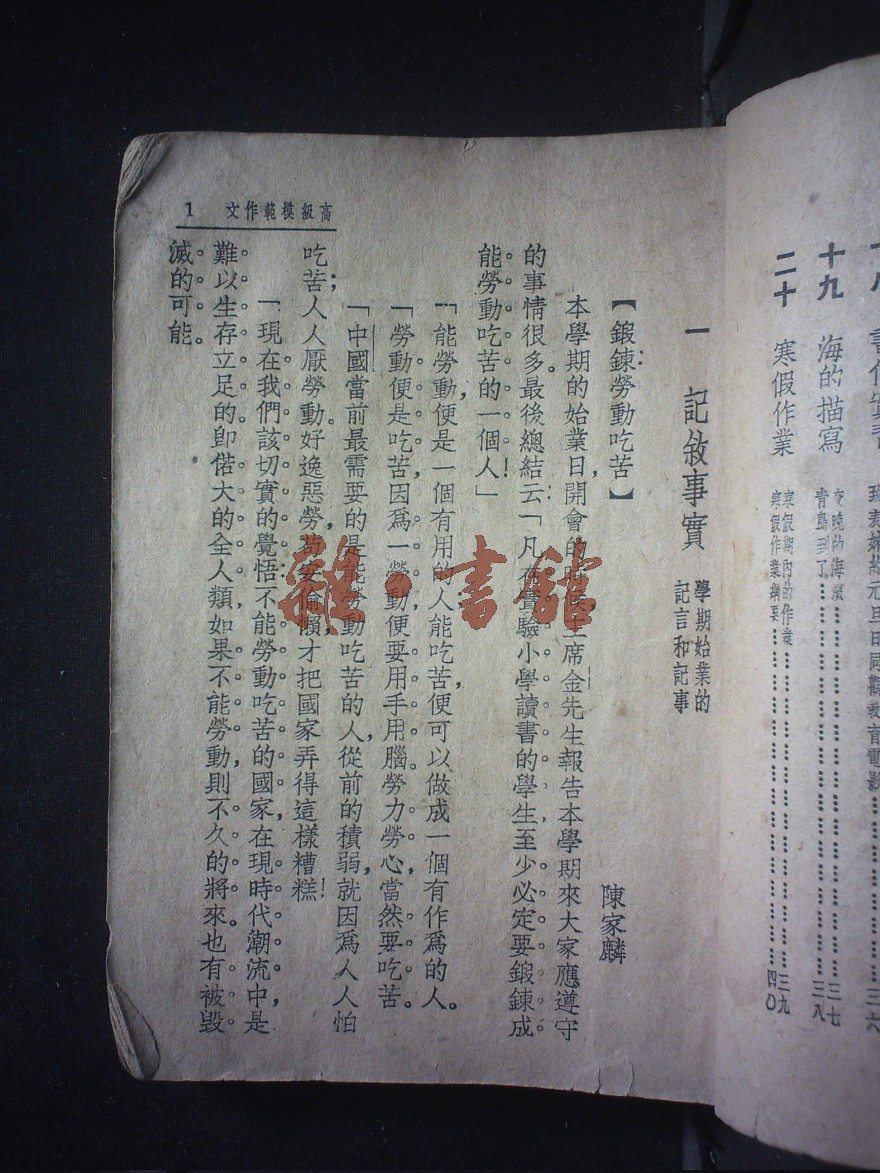 高級模範作文 1
一 記敘事實
學期始業的
記言和記事
【鍛鍊勞動吃苦】
陳家麟
本學期的始業日,開會的時候,主席金先生報告本學期來大家應遵守
的事情很多。最後總結云:「凡在實驗小學讀書的學生,至少必定要鍛鍊成
能勞動吃苦的一個人!」
「能勞動,便是一個有用的人能吃苦,便可以做成一個有作爲的人。
「勞動便是吃苦,因爲一勞動,便要用手用腦,勞力勞心,當然要吃苦。
「中國當前最需要的是能勞動吃苦的人,從前的積弱,就因爲人人怕
吃苦;人人厭勞動。好逸惡勞,苟安偷懶,才把國家弄得這樣糟糕!
「現在我們該切實的覺悟:不能勞動吃苦的國家,在現時代潮流中,是
難以生存立足的。卽偌大的全人類,如果不能勞動,則不久的將來。也有被毀
滅的可能。
十九 海的描寫
夜晚的海濱……三七
青島到了……三八
二十 寒假作業
寒假期內的作業……三九
寒假作業綱要……四〇
雜·書館